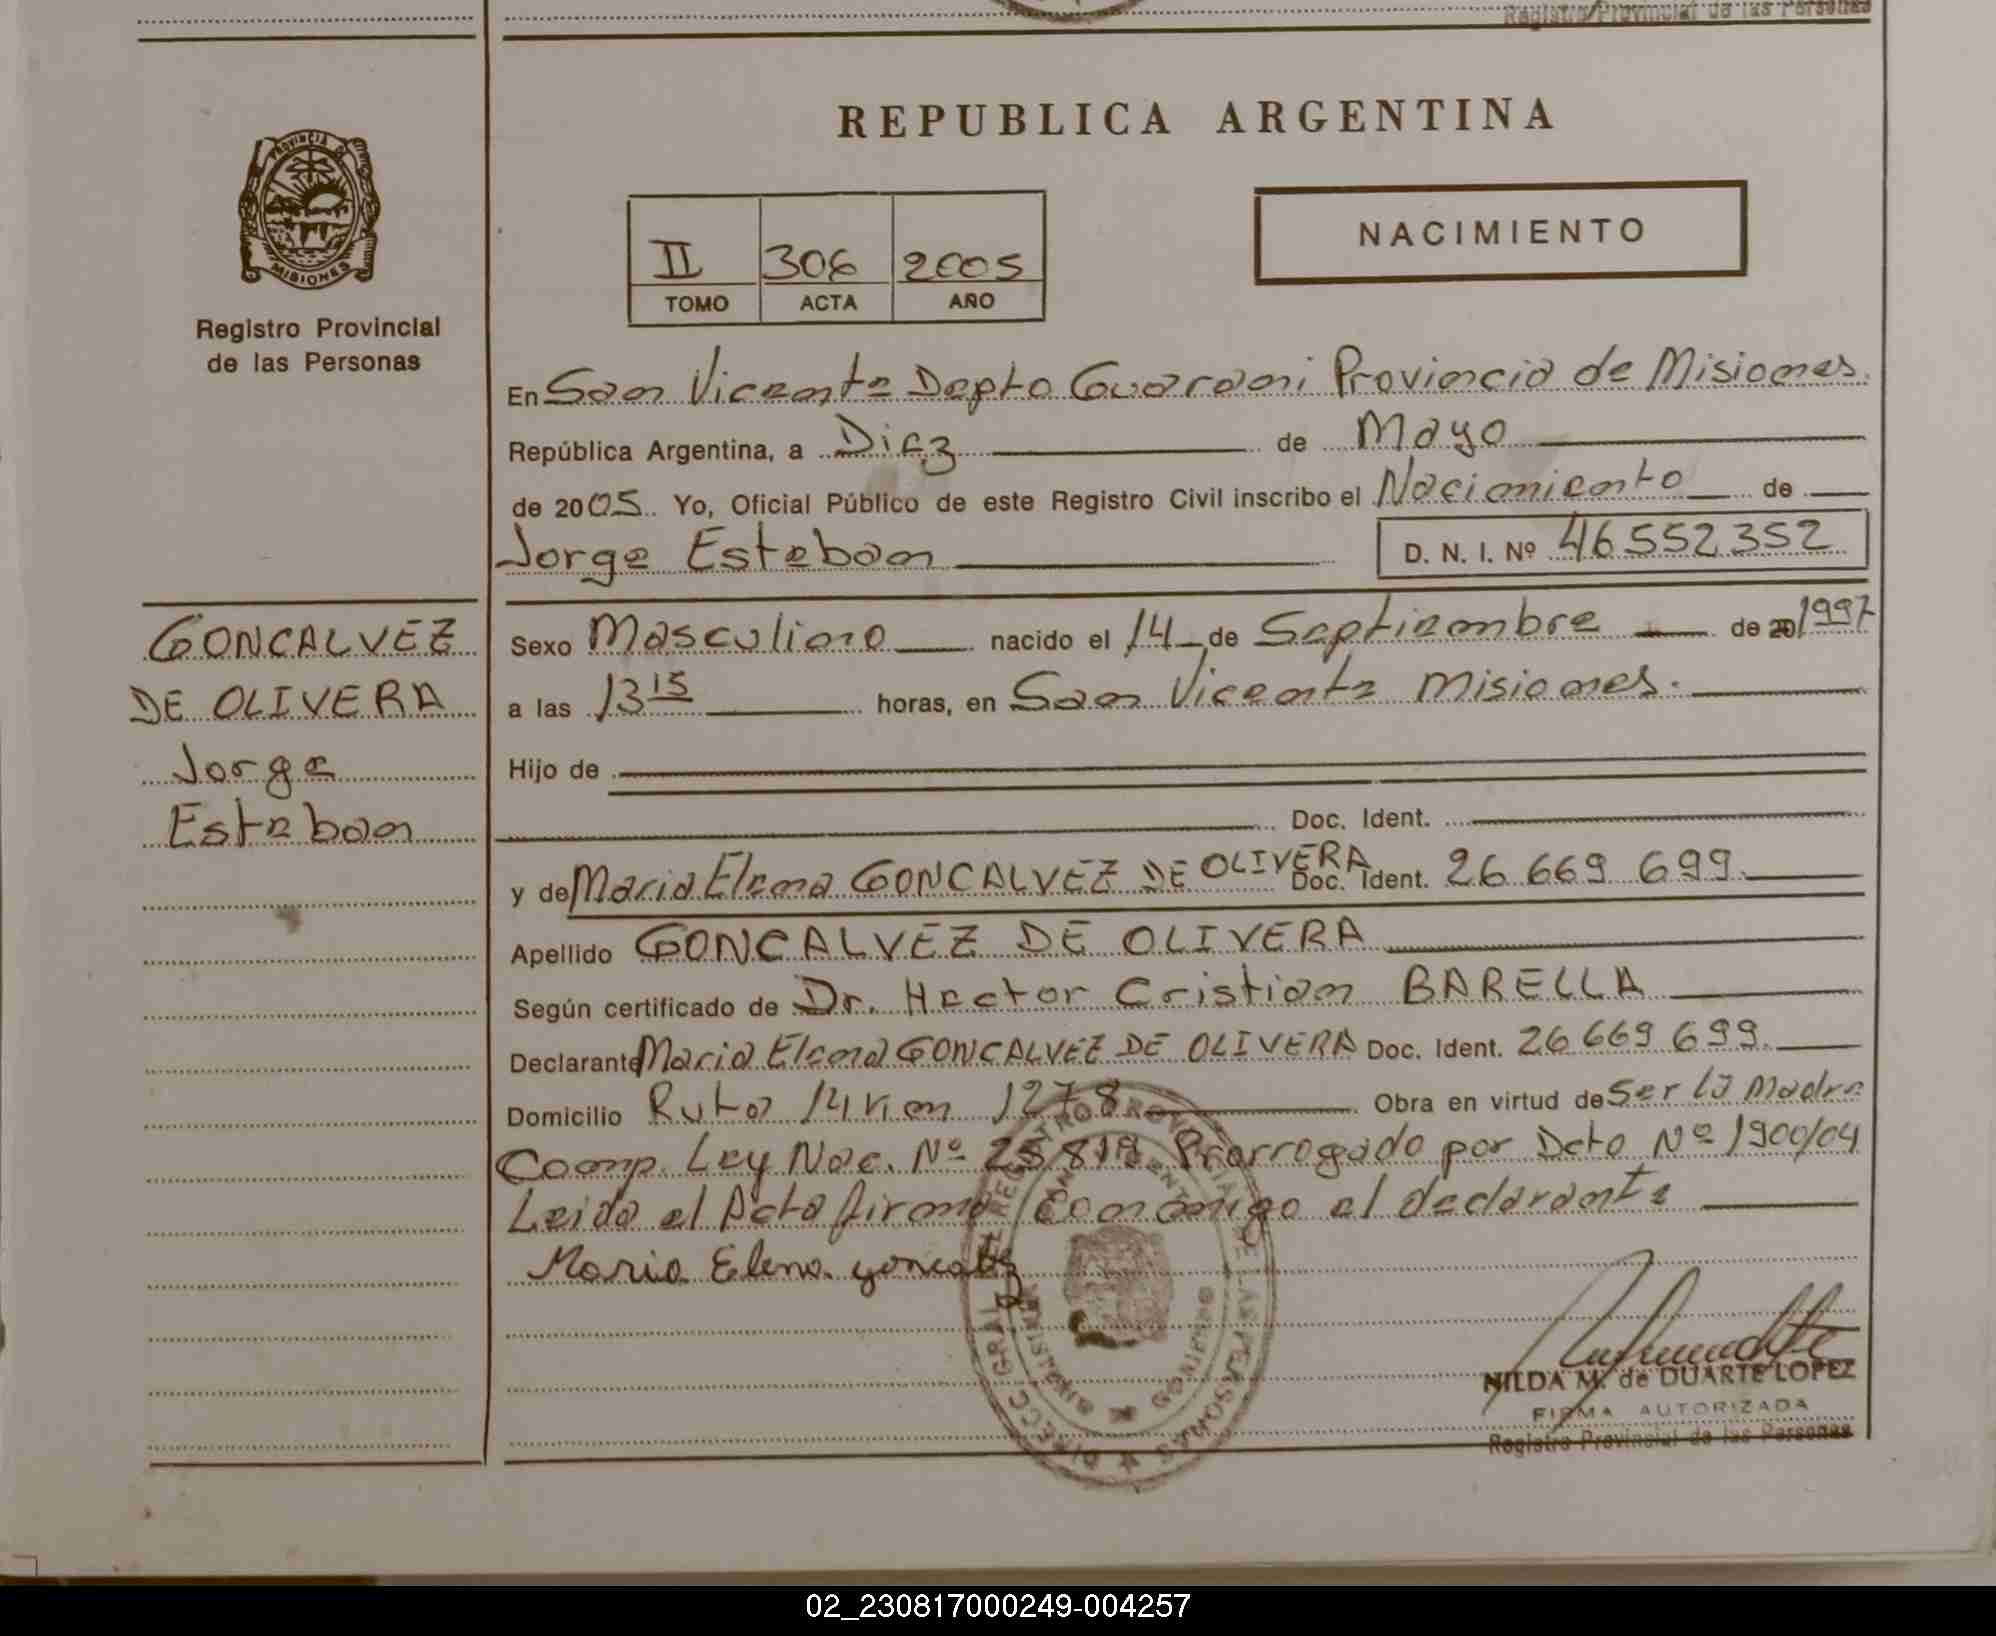 Registro Provincial de las Personas
REPUBLICA ARGENTINA
PROVINCIA DE
MISIONES
Registro Provincial
de las Personas
II 306 2005
TOMO ACTA AÑO
NACIMIENTO
En San Vicente Depto Guarani Provincia de Misiones.
República Argentina, a Diez de Mayo
de 2005. Yo, Oficial Público de este Registro Civil inscribo el Nacimiento de
Jorge Esteban D. N. I. Nº 46 552 352
GONCALVEZ
DE OLIVERA
Jorge
Esteban
Sexo Masculino nacido el 14 de Septiembre de 20 1997
a las 13 15 horas, en San Vicente Misiones.
Hijo de
Doc. Ident.
y de Maria Elena GONCALVEZ DE OLIVERA Doc. Ident. 26 669 699.
Apellido GONCALVEZ DE OLIVERA
Según certificado de Dr. Hector Cristian BARELLA
Declarante Maria Elena GONCALVEZ DE OLIVERA Doc. Ident. 26 669 699.
Domicilio Ruta 14 Km 1278 Obra en virtud de Ser la Madre
Comp. Ley Nac. Nº 25 819 Prorrogado por Dcto Nº 1900/04
Leida el Acta firma conmigo el declarante
Maria Elena goncalez
DIRECC. GRAL. DE REGISTRO PROVINCIAL DE LAS PERSONAS
MINISTERIO GOBIERNO
NILDA M. de DUARTE LOPEZ
FIRMA AUTORIZADA
Registro Provincial de las Personas
02_230817000249-004257